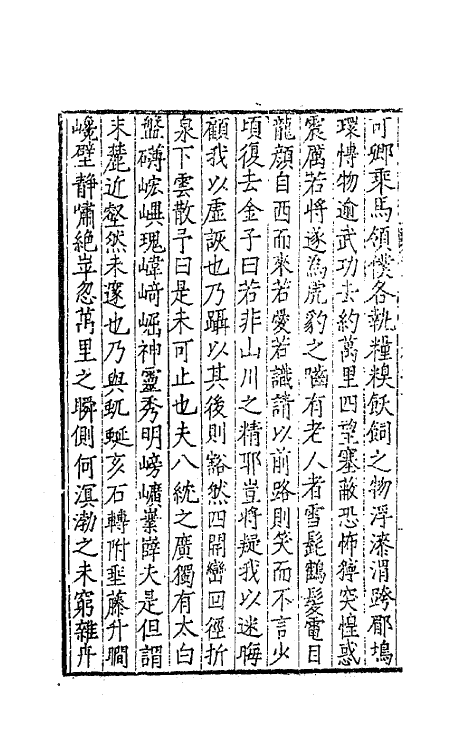 可卿乘馬領僕各執糧糗飫飼之物浮漆渭跨郿塢
環愽物逾武功去約萬里四望塞蔽恐怖獐突惶惑
震厲若將遂為虎豹之嚙有老人者雪髭鶴髮電目
龍顔自西而來若愛若識請以前路則笑而不言少
頃復去金子曰若非山川之精耶豈將疑我以迷晦
顧我以虛誑也乃躡以其後則豁然四開巒回徑折
泉下雲散予曰是未可止也夫八統之廣獨有太白
盤礴嵱㠘瑰嶂崎崛神靈秀明嵭㠠嶪薜夫是但謂
末麓近壑然未邃也乃與軏蜒亥石轉附垂藤升瞷
巉壁静嘯絶岸忽萬里之瞬側何溟渤之未窮雜丹